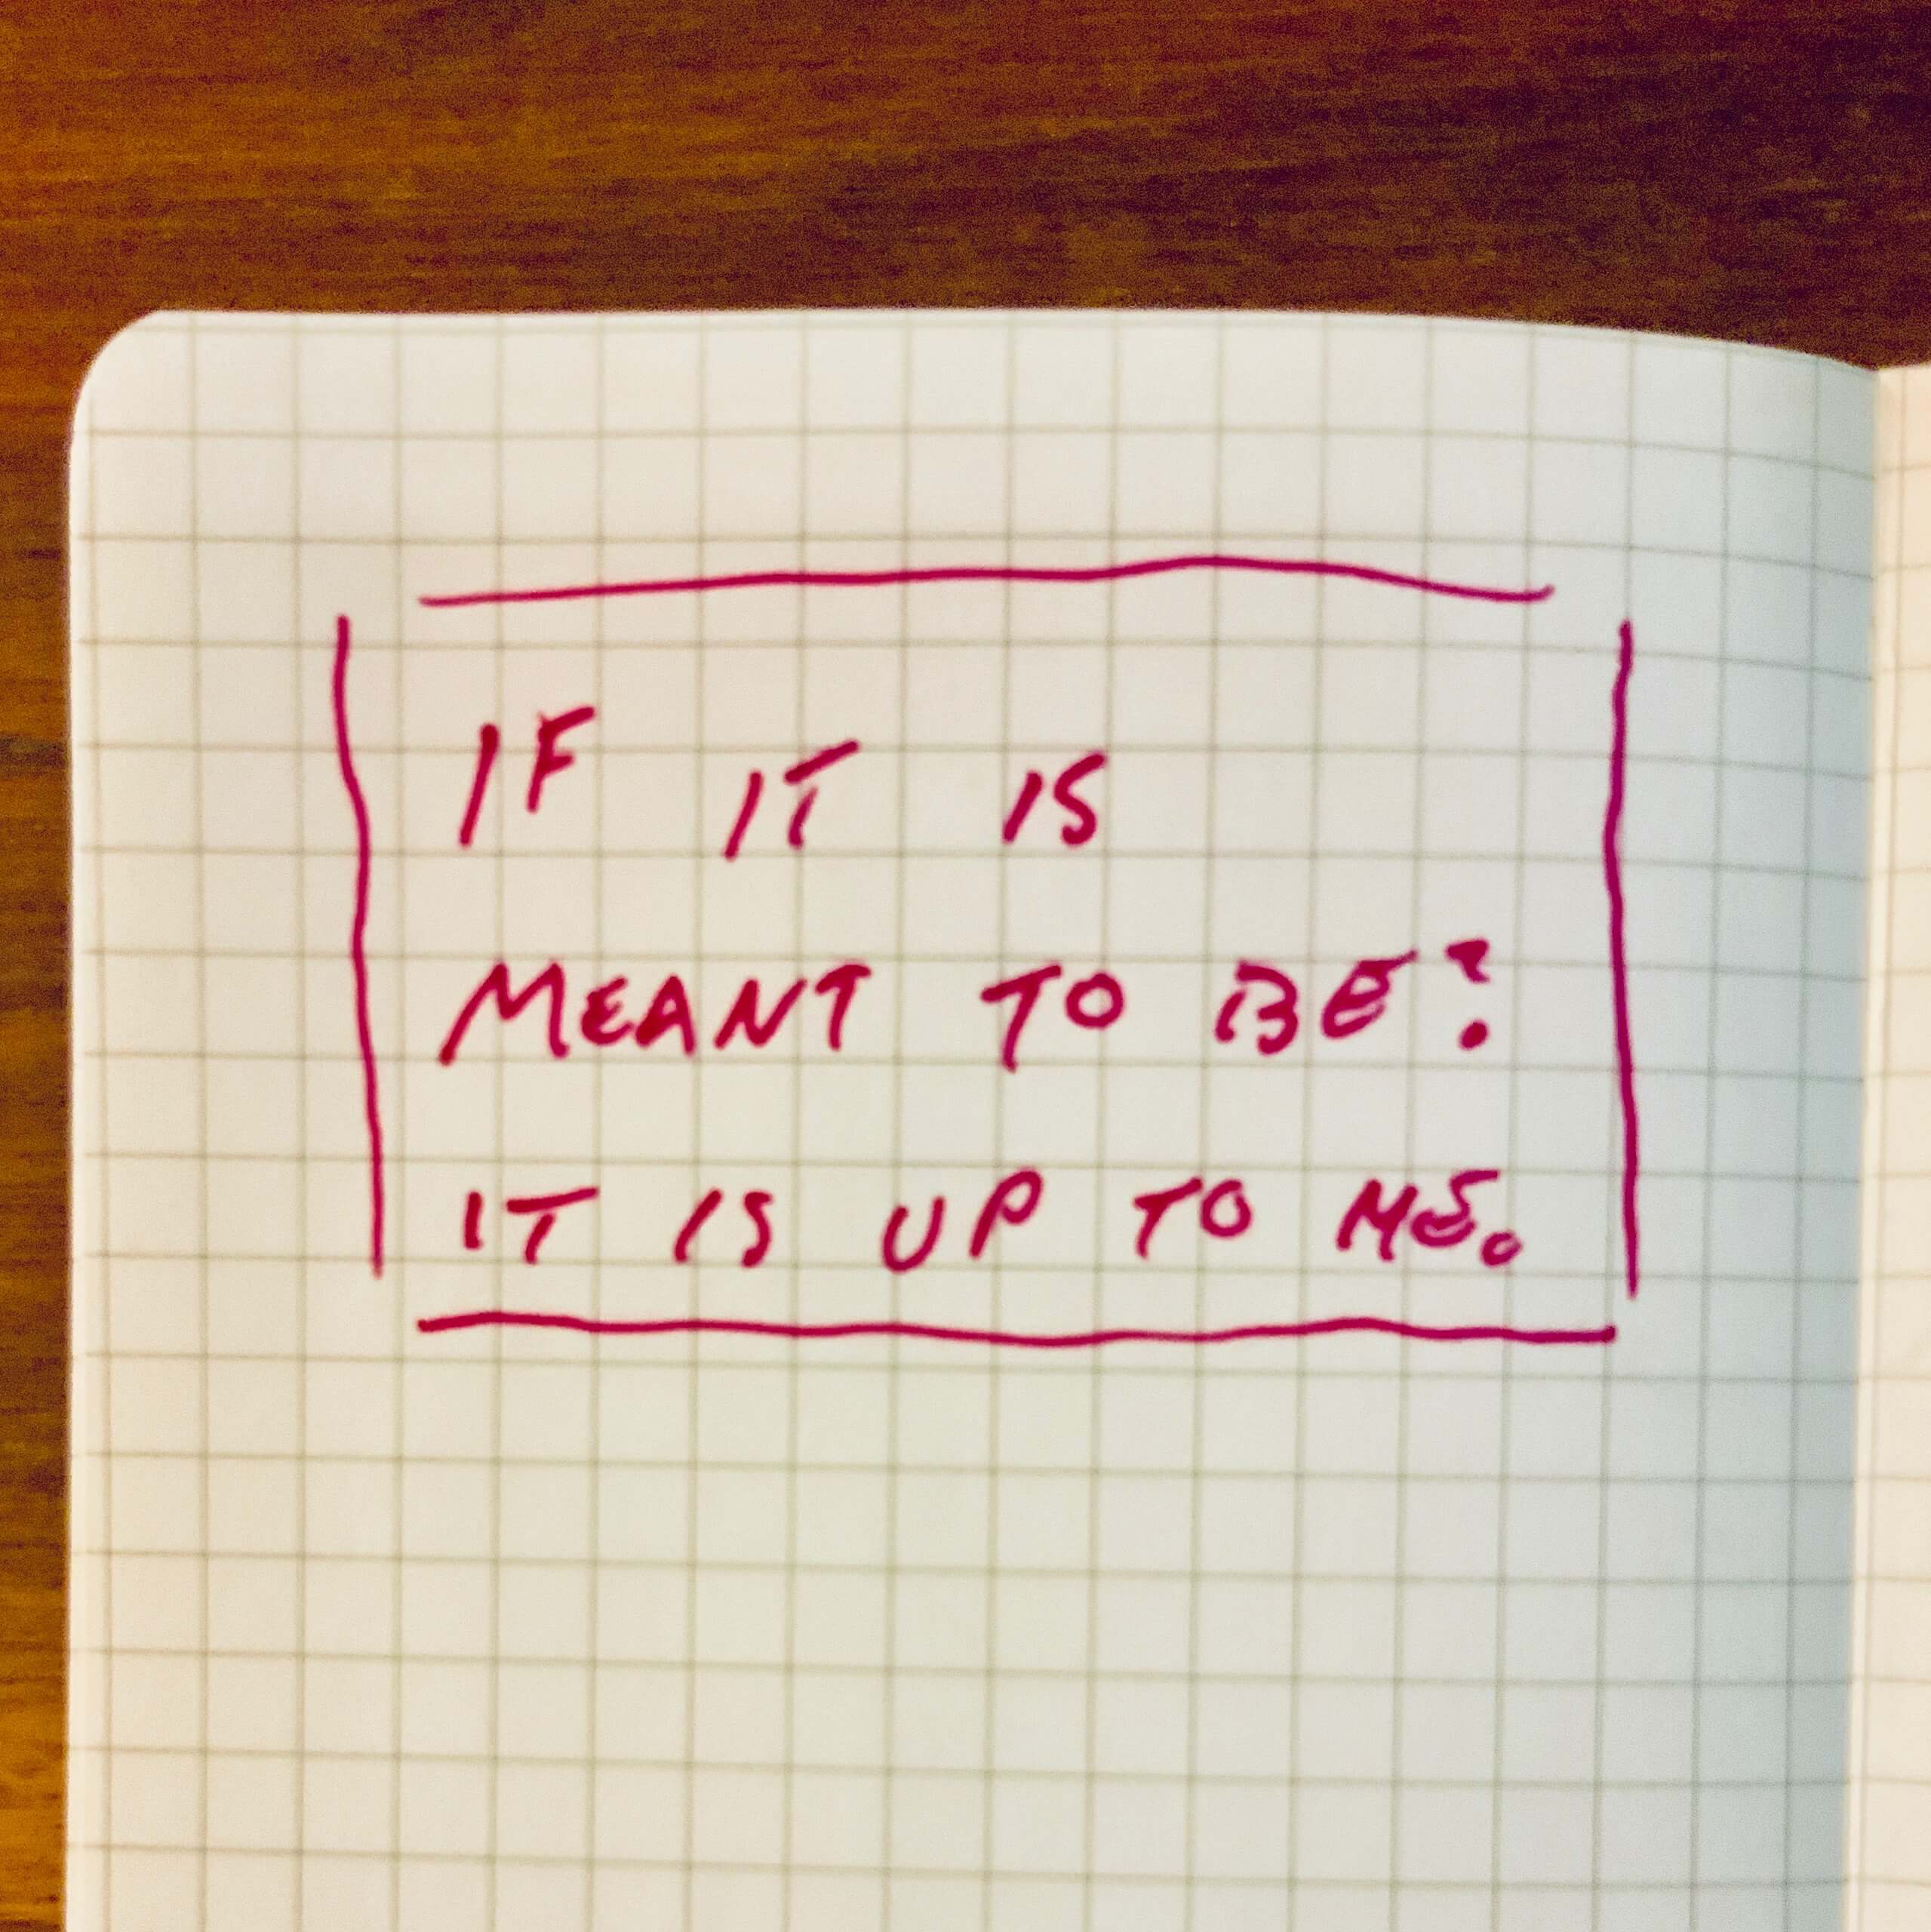 IF IT IS
MEANT TO BE?
IT IS UP TO ME.